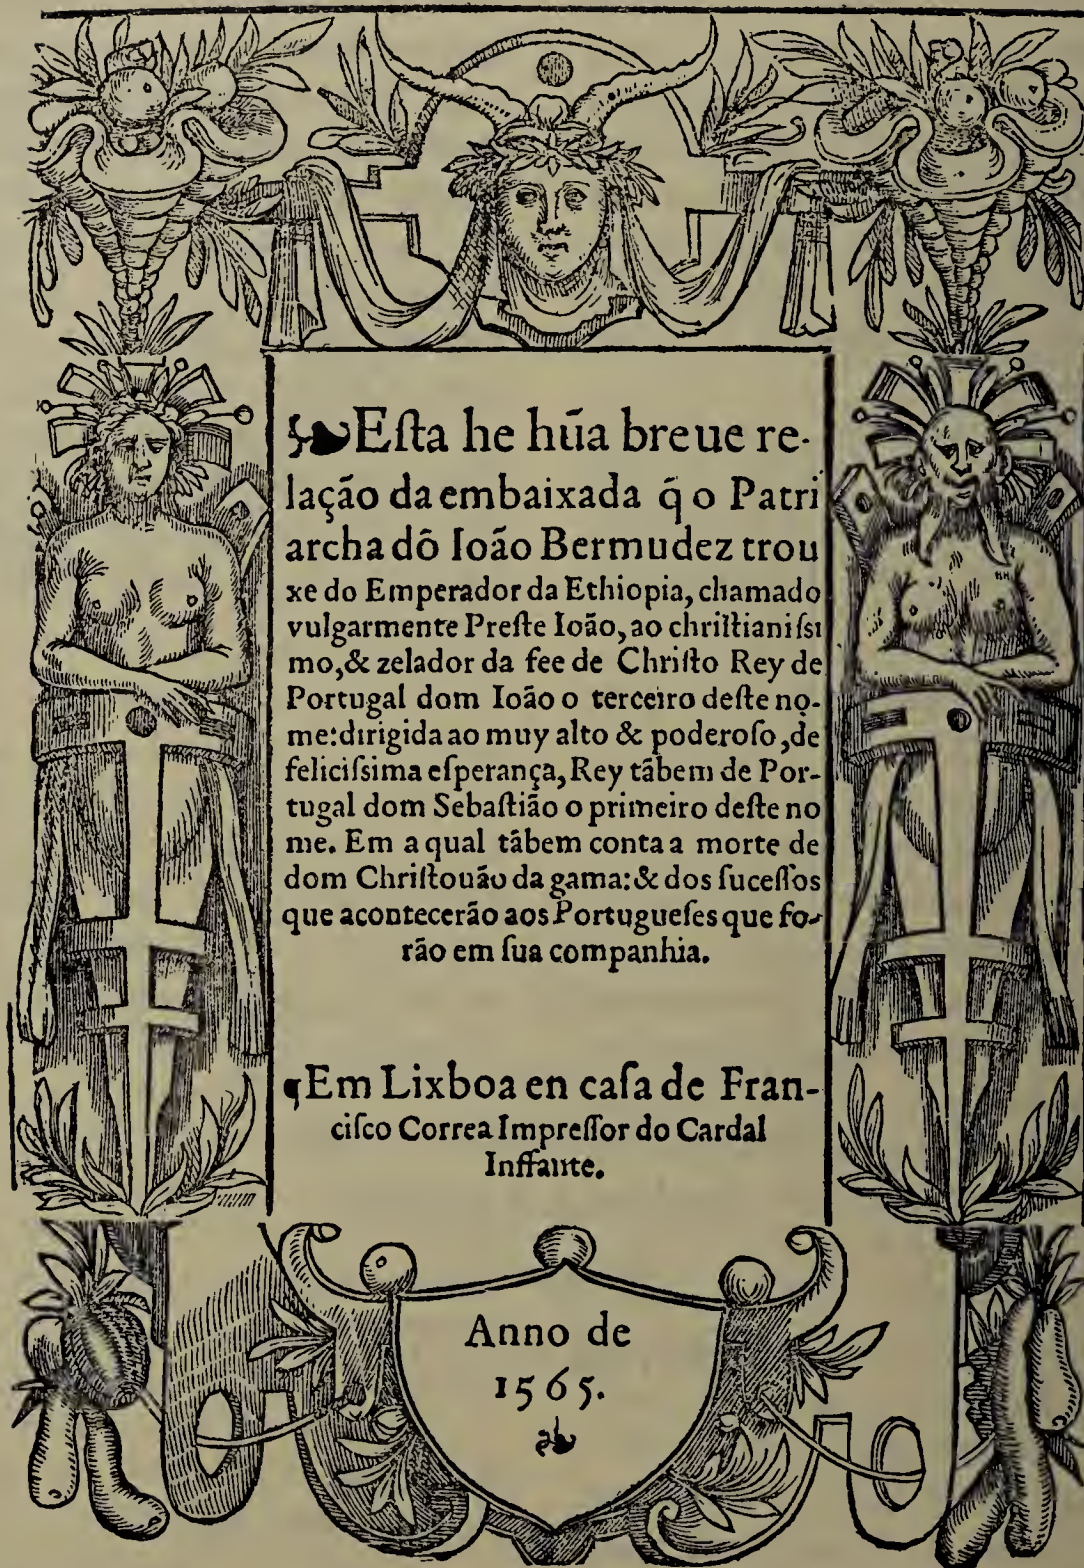 ❧Eſta he hũa breue re-
lação da embaixada q̃ o Patri
archa dõ Ioão Bermudez trou
xe do Emperador da Ethiopia, chamado
vulgarmente Preſte Ioão, ao chriſtianiſsi
mo, & zelador da fee de Chriſto Rey de
Portugal dom Ioão o terceiro deſte no-
me: dirigida ao muy alto & poderoſo, de
feliciſsima eſperança, Rey tãbem de Por-
tugal dom Sebaſtião o primeiro deſte no
me. Em a qual tãbem conta a morte de
dom Chriſtouão da gama: & dos ſuceſſos
que acontecerão aos Portugueſes que fo-
rão em ſua companhia.
¶Em Lixboa en caſa de Fran-
ciſco Correa Impreſſor do Cardal
Inffante.
Anno de
1565.